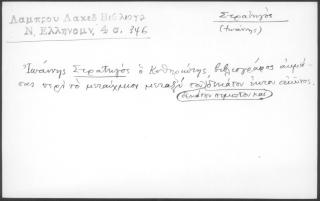 Λαμπρου Λακεδ Βιβλιογρ
Ν. Ελληνομν. 4 σ. 346
Στρατηγός
(Ἰωάννης)
Ἰωάννης Στρατηγός ὁ Κυθηριώτης, βιβλιογράφος ἀκμά-
σας περὶ τὸ μεταίχμιον μεταξὺ τοῦ δεκάτου ἕκτου αἰῶνος.
δεκάτου πέμπτου καὶ